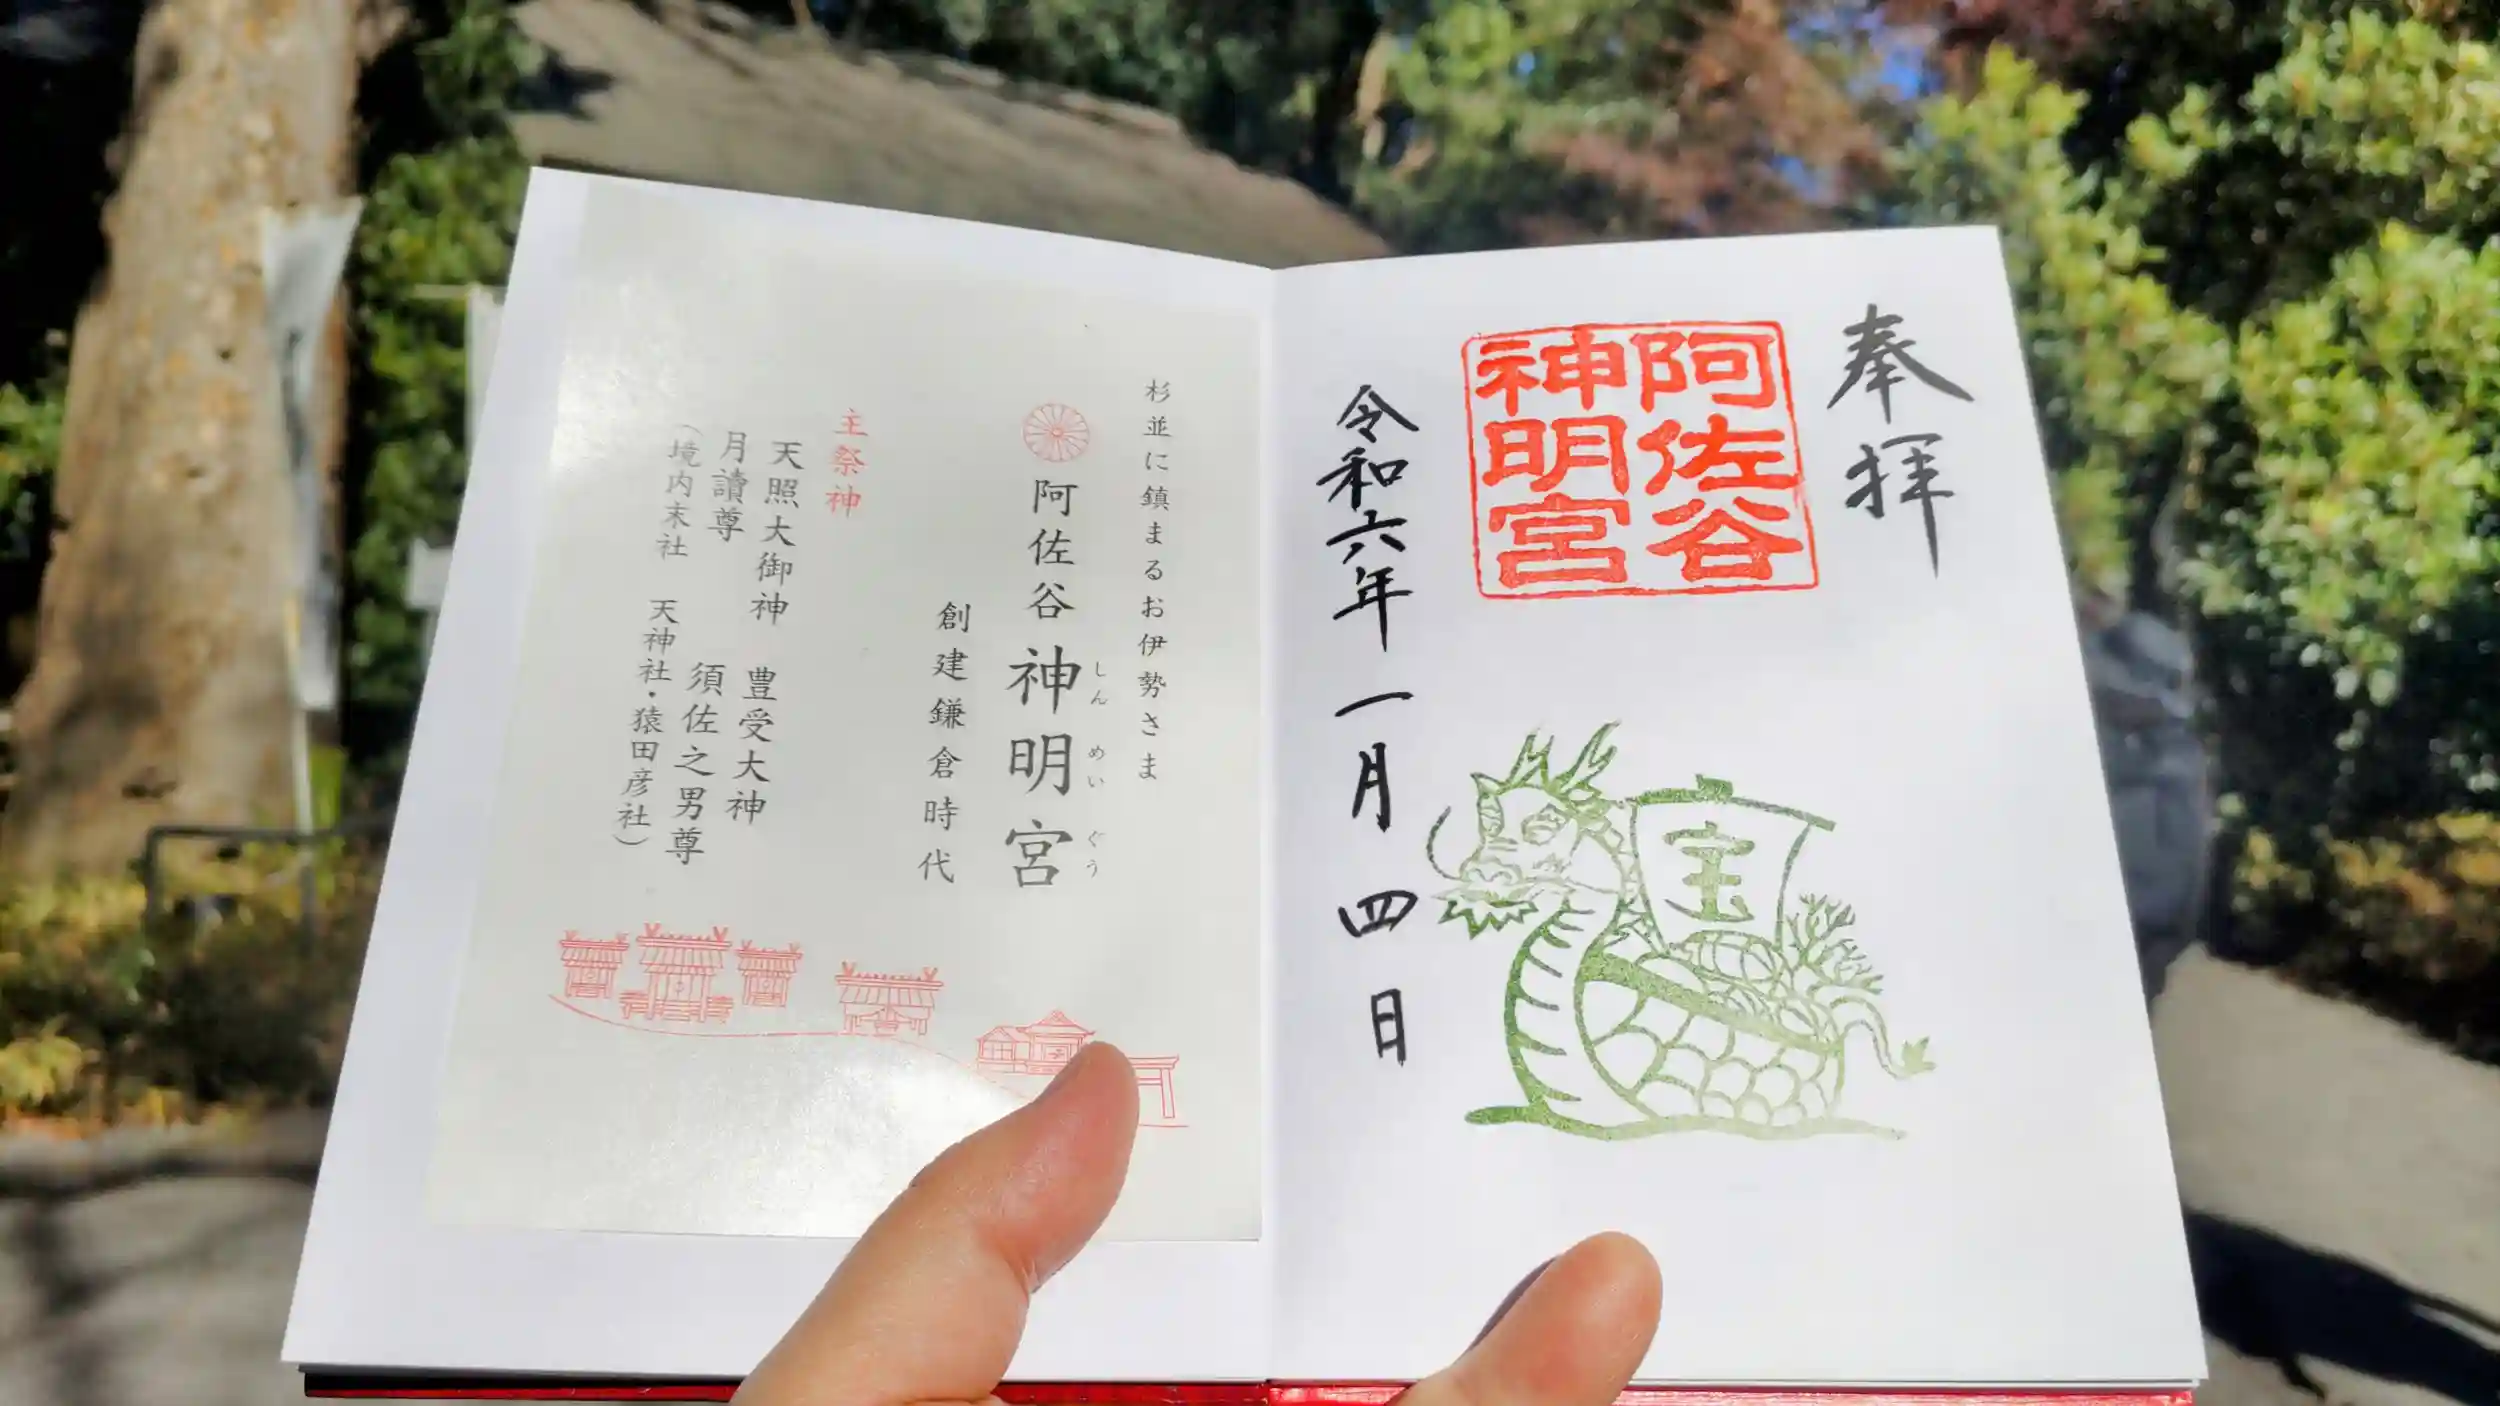 奉拝
阿佐谷
神明宮
宝
令和六年一月四日
杉並に鎮まるお伊勢さま
阿佐谷神明宮
しんめいぐう
創建鎌倉時代
主祭神
天照大御神 豊受大神
月讀尊 須佐之男尊
（境内末社 天神社・猿田彦社）